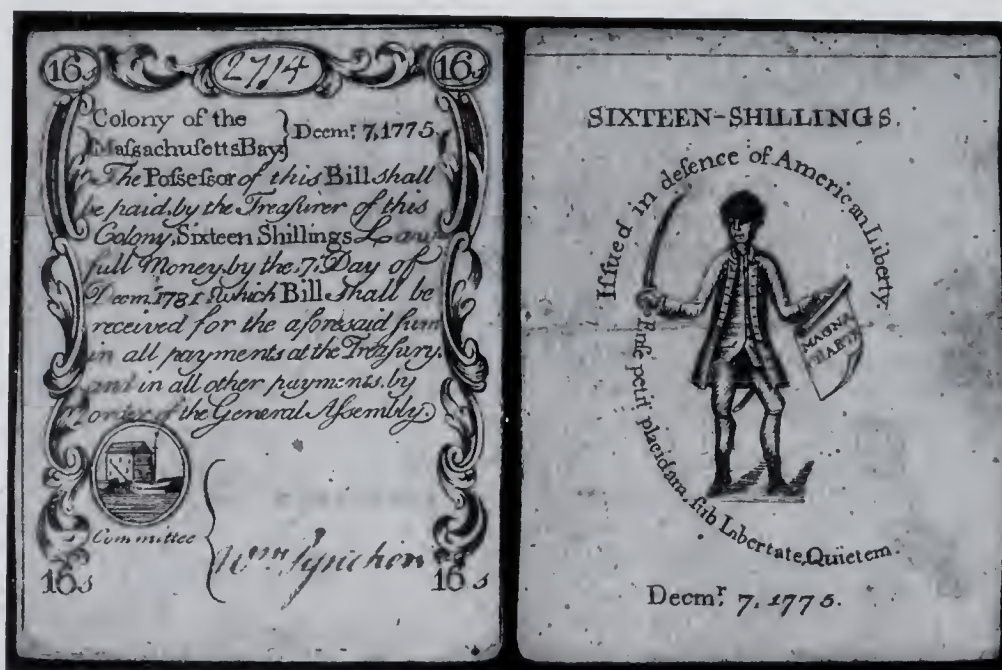 16s 2714 16s
Colony of the
MaſsachusettsBay} Decmr. 7,1775.
The Poſseſsor of this Bill shall
be paid, by the Treaſurer of this
Colony, Sixteen Shillings Law
full Money, by the, 7, Day of
Decmr. 1781. which Bill shall be
received for the aforesaid ſum
in all payments at the Treaſury.
and in all other payments, by
order of the General Aſsembly.
Committee
Wm. Pynchon
16s 16s
SIXTEEN-SHILLINGS.
Iſſued in defence of American Liberty.
MAGNA
CHARTA
Enſe petit placidam, ſub Libertate, Quietem.
Decmr. 7, 1775.